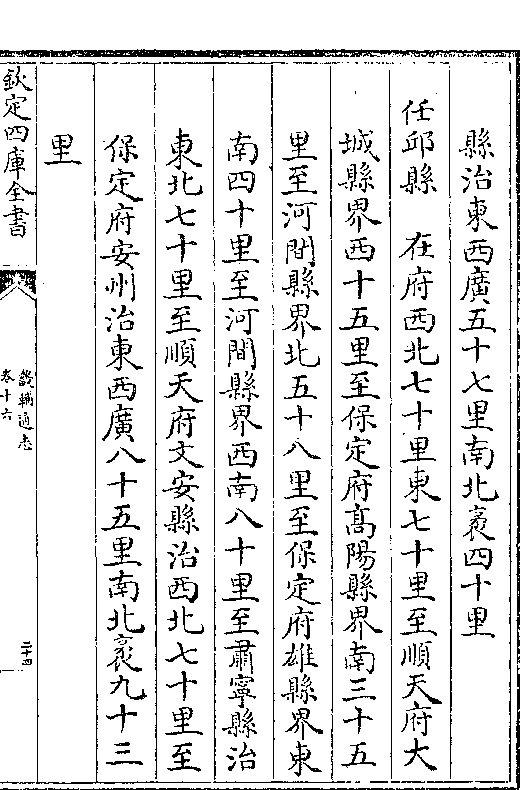 縣治東西廣五十七里南北袤四十里
任邱縣　在府西北七十里東七十里至順天府大
城縣界西十五里至保定府髙陽縣界南三十五
里至河間縣界北五十八里至保定府雄縣界東
南四十里至河間縣界西南八十里至肅寧縣治
東北七十里至順天府文安縣治西北七十里至
保定府安州治東西廣八十五里南北袤九十三
里
欽定四庫全書
畿輔通志
卷十六
二十四